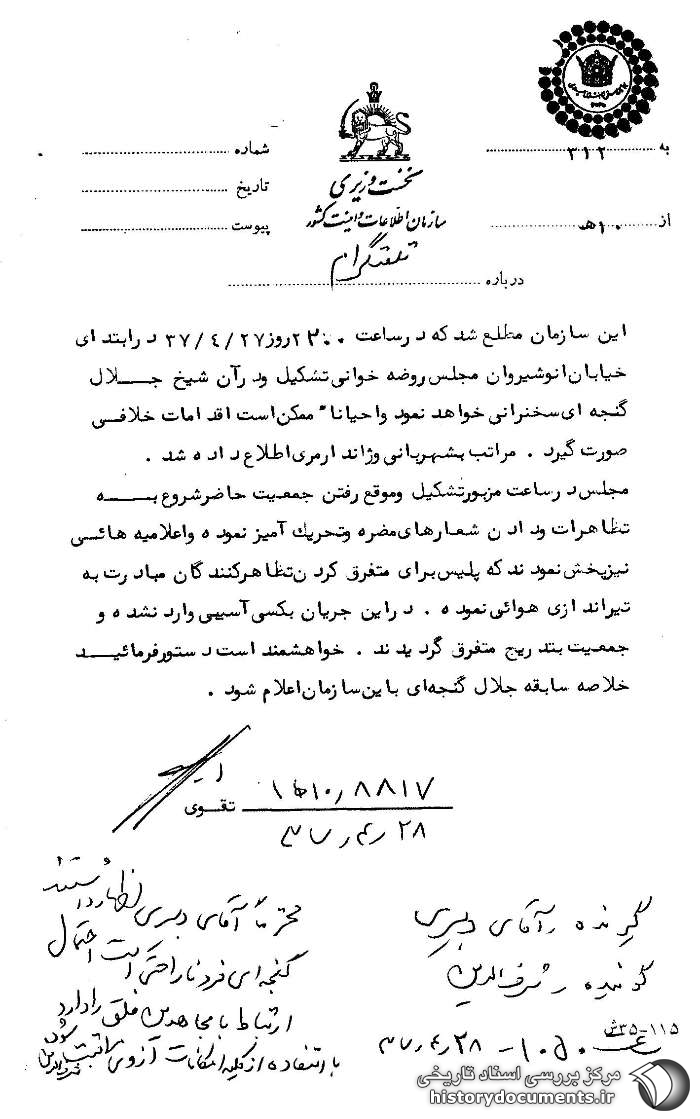 به ۳۱۲
شماره
نخست وزیری
تاریخ
سازمان اطلاعات و امنیت کشور
از ۱۰هـ
پیوست
تلفنگرام
درباره
این سازمان مطلع شد که در ساعت ۲۲۰۰ روز ۳۷/۴/۲۷ در ابتدای
خیابان انوشیروان مجلس روضه خوانی تشکیل و در آن شیخ جلال
گنجه ای سخنرانی خواهد نمود و احیانا" ممکن است اقدامات خلافی
صورت گیرد . مراتب بشهربانی و ژاندارمری اطلاع داده شد .
مجلس در ساعت مزبور تشکیل و موقع رفتن جمعیت حاضر شروع به
تظاهرات و دادن شعارهای مضره و تحریک آمیز نموده و اعلامیه هائی
نیز پخش نمودند که پلیس برای متفرق کردن تظاهرکنندگان مبادرت به
تیراندازی هوائی نموده . در این جریان بکسی آسیبی وارد نشده و
جمعیت بتدریج متفرق گردیدند . خواهشمند است دستور فرمائید
خلاصه سابقه جلال گنجه ای باین سازمان اعلام شود .
تقوی ۸۸۱۷/۱۰هـ۱
۳۷/۴/۲۸
گیرنده آقای دبیری
گوینده شرف الدین
ساعت ۱۰۵۰ - ۳۷/۴/۲۸
محترماً آقای دبیری اظهار داشتند
گنجه ای فرد ناراحتی است احتمال
ارتباط با مجاهدین خلق را دارد
با استفاده از کلیه امکانات از وی مراقبت شود
شرف الدین
۱۱۵-۳۵ش
مرکز بررسی اسناد تاریخی
historydocuments.ir